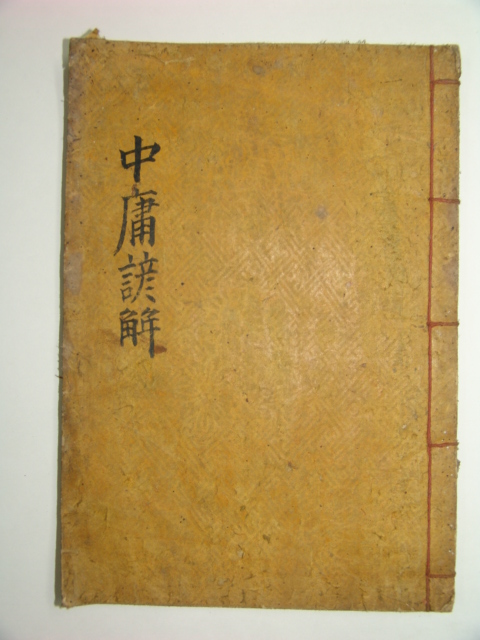 中庸諺解